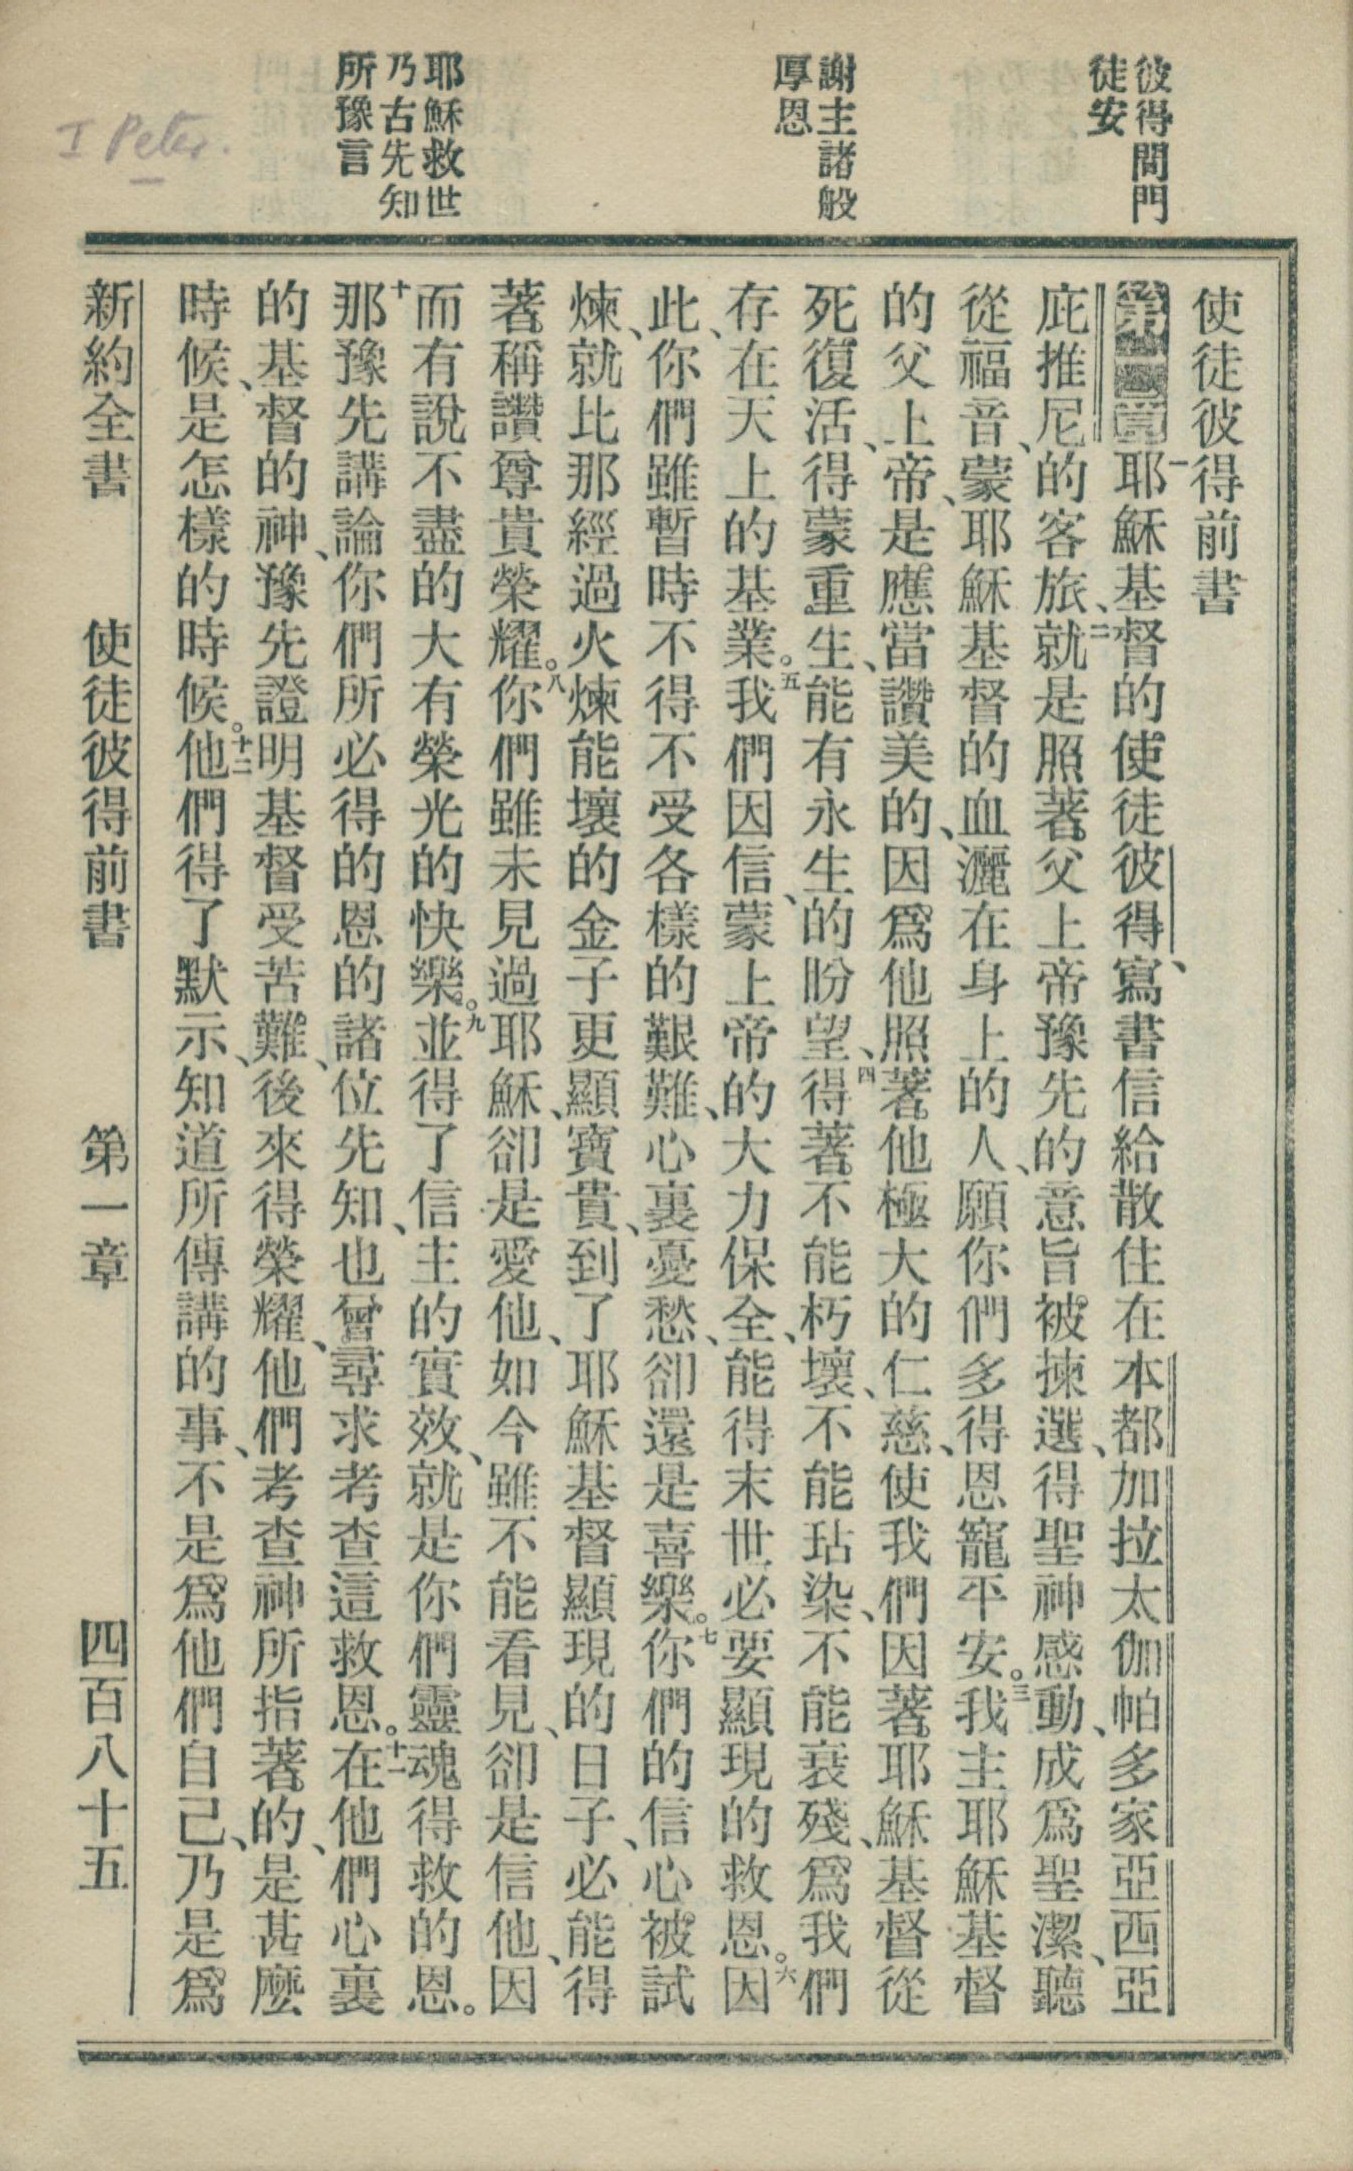 彼得問門
徒安
謝主諸般
厚恩
耶穌救世
乃古先知
所豫言
I Peter.
使徒彼得前書
第一章一耶穌基督的使徒彼得、寫書信給散住在本都加拉太伽帕多家亞西亞
庇推尼的客旅、二就是照著父上帝豫先的意旨被揀選、得聖神感動、成爲聖潔、聽
從福音、蒙耶穌基督的血灑在身上的人、願你們多得恩寵平安。三我主耶穌基督
的父上帝、是應當讚美的、因爲他照著他極大的仁慈、使我們因著耶穌基督從
死復活、得蒙重生、能有永生的盼望、四得著不能朽壞、不能玷染、不能衰殘、爲我們
存在天上的基業。五我們因信、蒙上帝的大力保全、能得末世必要顯現的救恩。六因
此、你們雖暫時不得不受各樣的艱難、心裏憂愁、卻還是喜樂。七你們的信心被試
煉、就比那經過火煉能壞的金子更顯寶貴、到了耶穌基督顯現的日子、必能得
著稱讚尊貴榮耀。八你們雖未見過耶穌、卻是愛他、如今雖不能看見、卻是信他、因
而有說不盡的大有榮光的快樂。九並得了信主的實效、就是你們靈魂得救的恩。
十那豫先講論你們所必得的恩的諸位先知、也曾尋求考查這救恩。十一在他們心裏
的基督的神、豫先證明基督受苦難、後來得榮耀、他們考查神所指著的、是甚麼
時候、是怎樣的時候。十二他們得了默示、知道所傳講的事、不是爲他們自己、乃是爲
新約全書　使徒彼得前書　第一章　四百八十五